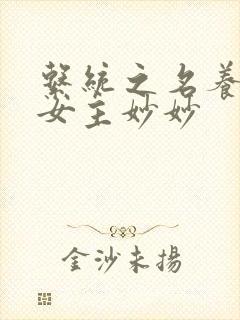 繫統之名養
女主妙妙
金沙未揚